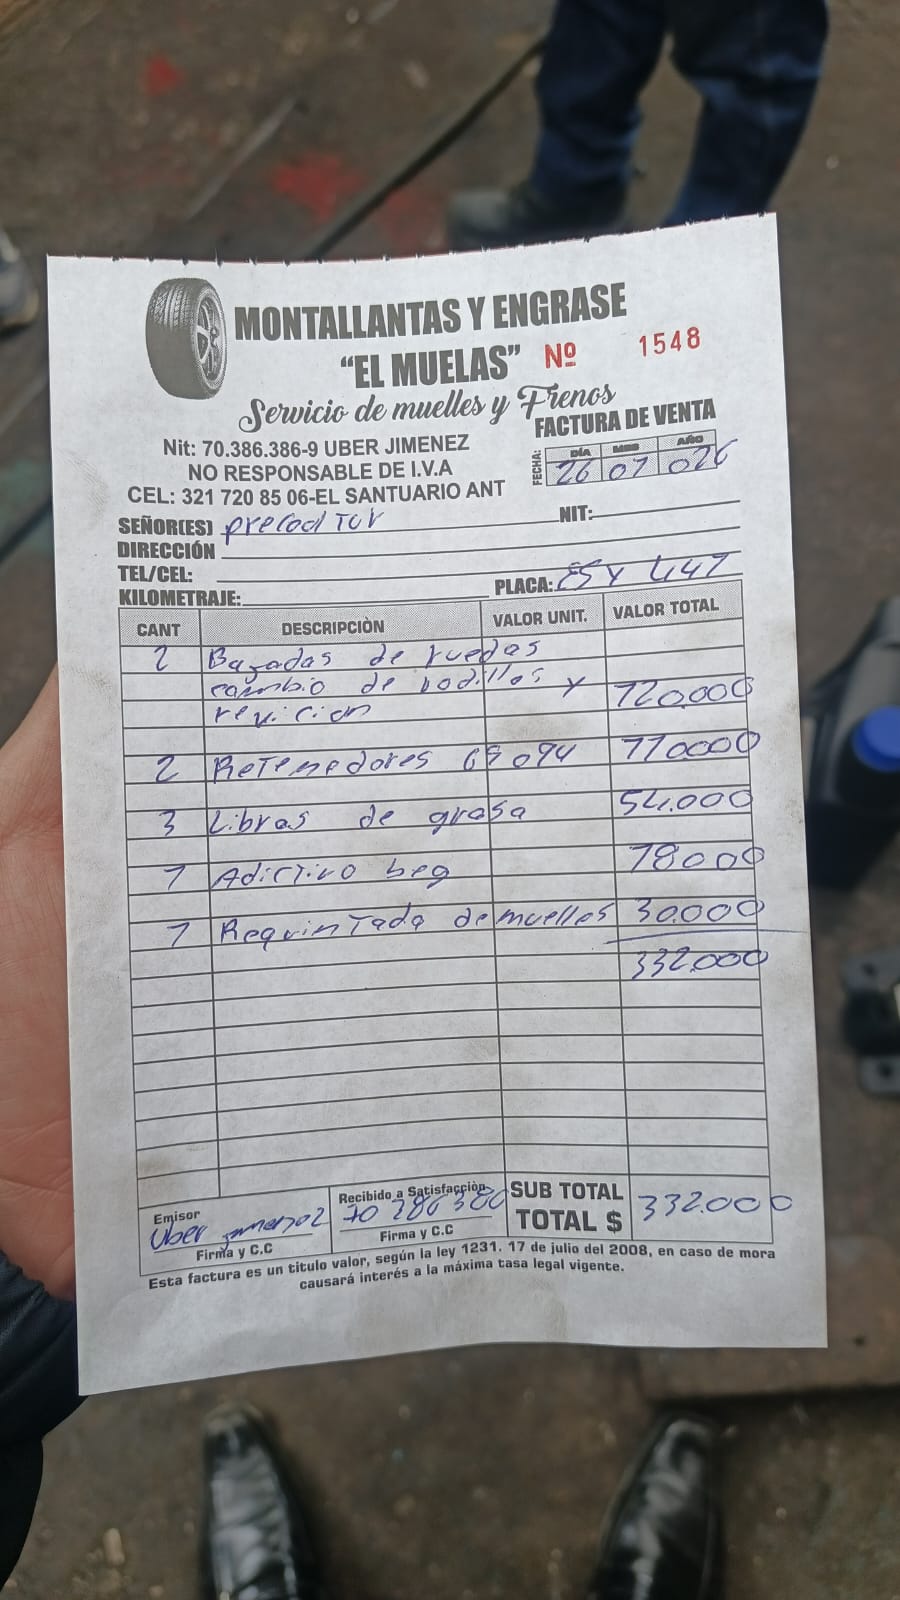 MONTALLANTAS Y ENGRASE
"EL MUELAS" Nº 1548
Servicio de muelles y Frenos
FACTURA DE VENTA
Nit: 70.386.386-9 UBER JIMENEZ
NO RESPONSABLE DE I.V.A
CEL: 321 720 85 06-EL SANTUARIO ANT
FECHA: DÍA MES AÑO
26 07 026
SEÑOR(ES) NIT:
DIRECCIÓN
TEL/CEL: PLACA:
KILOMETRAJE:
CANT DESCRIPCIÒN VALOR UNIT. VALOR TOTAL
2 Bagadas de ruedas
cambio de rodillos y 120.000
revicion
2 Retenedores 110000
3 Libras de grasa 54.000
1 Adictivo beg 18000
1 Requintada de muelles 30.000
332.000
Emisor Recibido a Satisfacciòn SUB TOTAL 332.000
Uber Jimenez 70 386 386 TOTAL $
Firma y C.C Firma y C.C
Esta factura es un titulo valor, según la ley 1231. 17 de julio del 2008, en caso de mora
causará interés a la máxima tasa legal vigente.